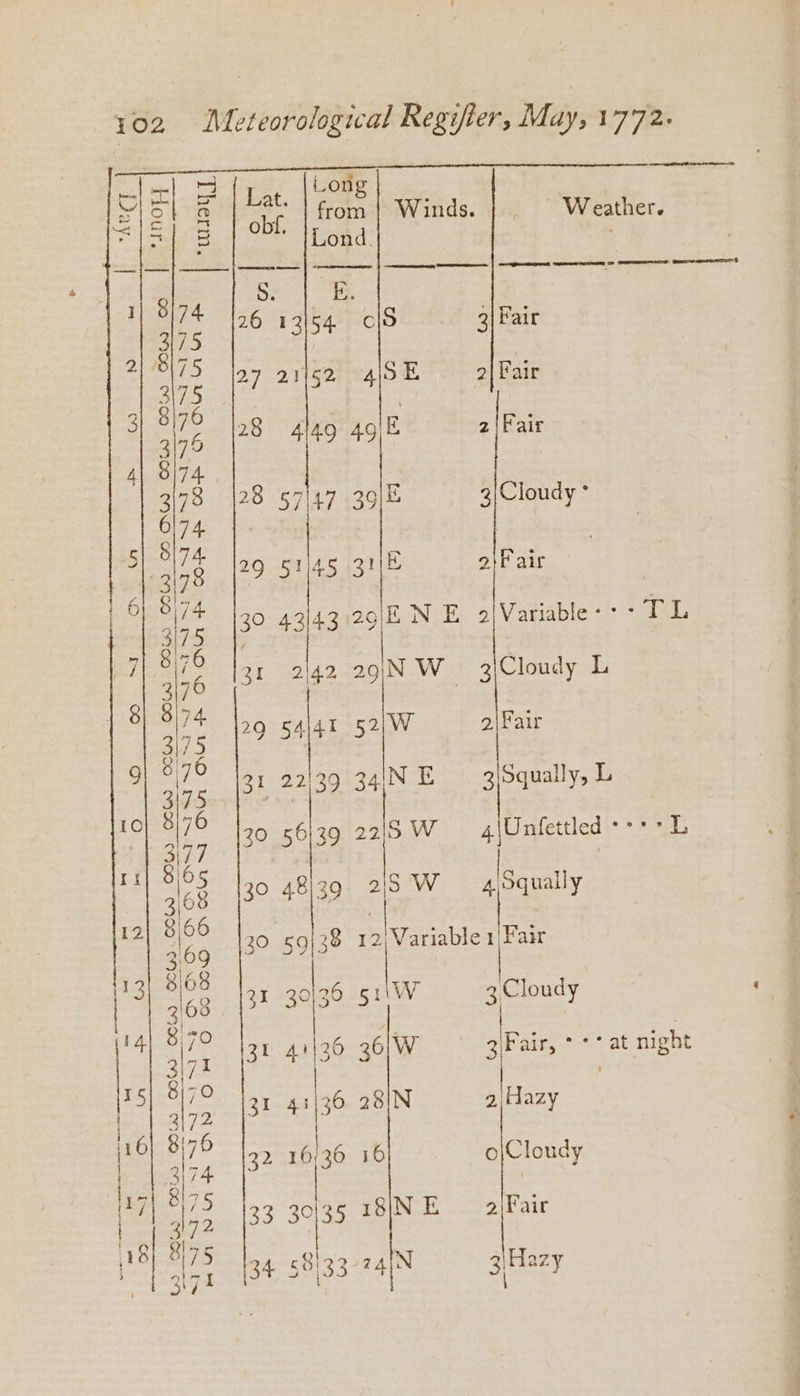 102 Meteorological Regiſter, May, 1772.
Day. Hour. Therm. Lat. obſ. Long from Lond. Winds. Weather.
S. E.
1 8 74 26 13 54 0 S 3 Fair
3 75
2 8 75 27 21 52 4 S E 2 Fair
3 75
3 8 76 28 4 49 49 E 2 Fair
3 76
4 8 74
3 78 28 57 47 39 E 3 Cloudy
6 74
5 8 74 29 51 45 31 E 2 Fair
3 78
6 8 74 30 43 43 29 E N E 2 Variable - - - T L
3 75
7 8 76 31 2 42 29 N W 3 Cloudy L
3 76
8 8 74 29 54 41 52 W 2 Fair
3 75
9 8 76 31 22 39 34 N E 3 Squally, L
3 75
10 8 76 30 56 39 22 S W 4 Unſettled - - - - L
3 77
11 8 65 30 48 39 2 S W 4 Squally
3 68
12 8 66 30 59 38 12 Variable 1 Fair
3 69
13 8 68 31 30 36 51 W 3 Cloudy
3 68
14 8 70 31 41 36 36 W 3 Fair, - - - at night
3 71
15 8 70 31 41 36 28 N 2 Hazy
3 72
16 8 76 32 16 36 16 0 Cloudy
3 74
17 8 75 33 30 35 18 N E 2 Fair
3 72
18 8 75 34 58 33 24 N 3 Hazy
3 71